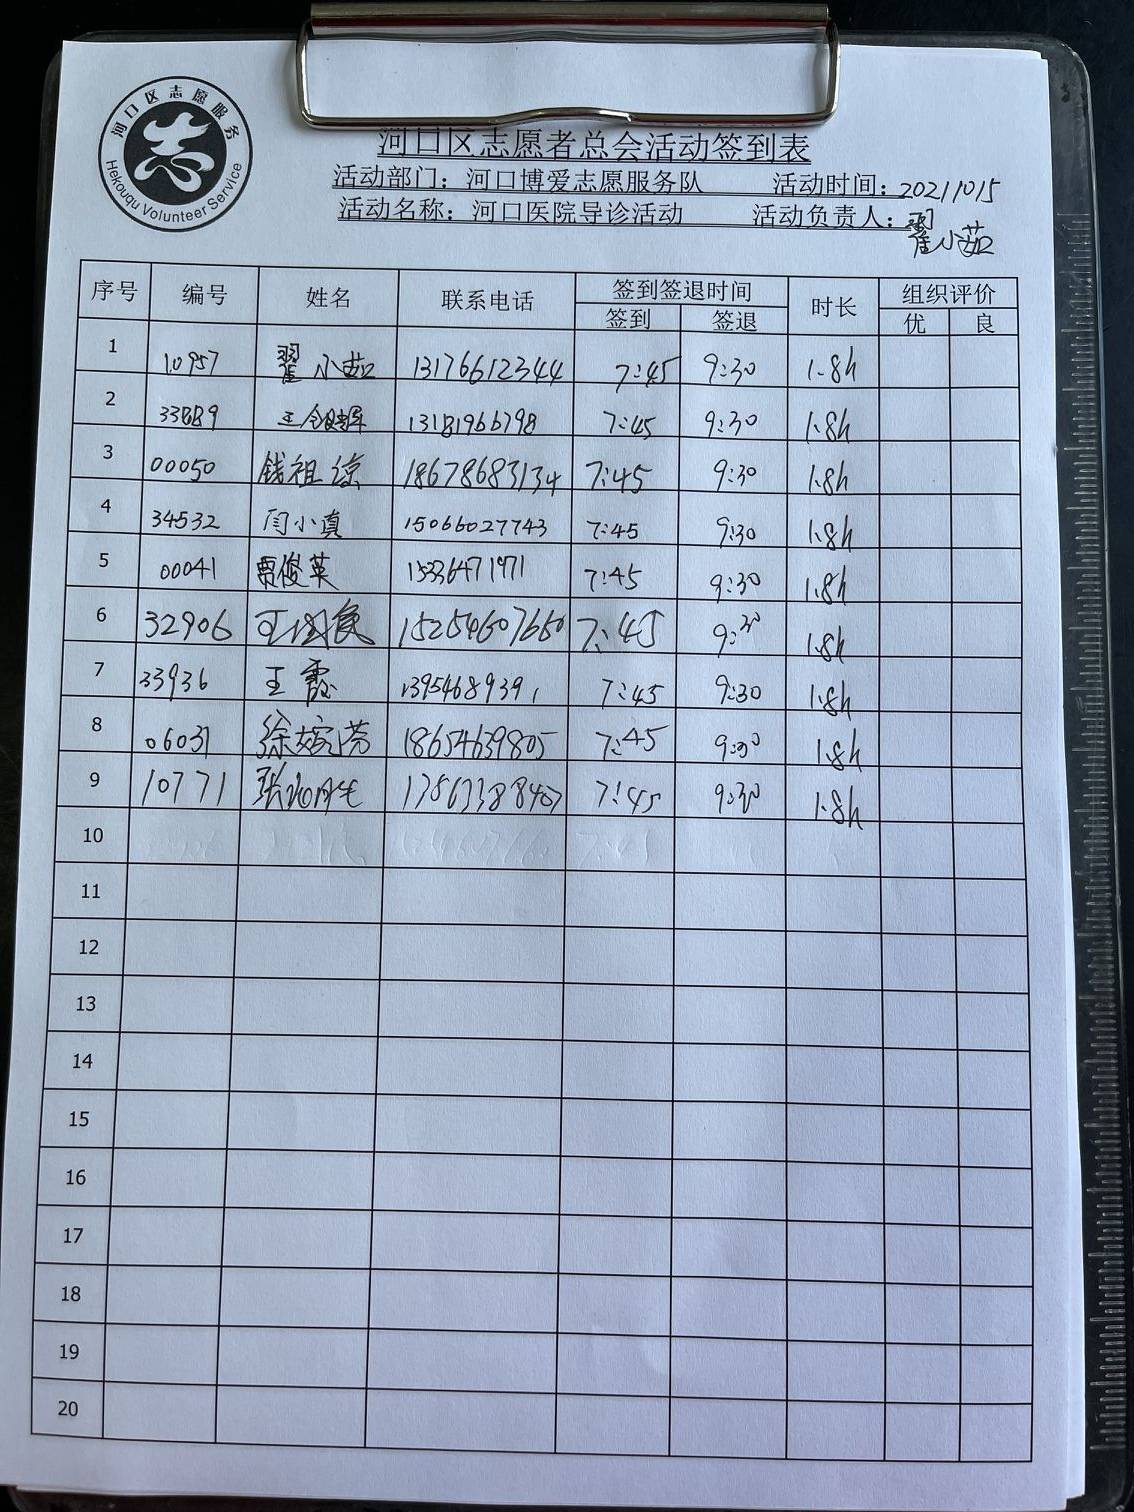 河口区志愿服务
Hekouqu Volunteer Service
河口区志愿者总会活动签到表
活动部门：河口博爱志愿服务队 活动时间：20211015
活动名称：河口医院导诊活动 活动负责人：翟小茹
序号 编号 姓名 联系电话 签到签退时间 时长 组织评价
签到 签退 优 良
1 10957 翟小茹 13176612344 7:45 9:30 1.8h
2 33889 王 13181966798 7:45 9:30 1.8h
3 00050 钱祖琼 18678683134 7:45 9:30 1.8h
4 34532 闫小真 15066027743 7:45 9:30 1.8h
5 00041 贾俊英 15336471971 7:45 9:30 1.8h
6 32906 王国良 15254607660 7:45 9:30 1.8h
7 33936 王霞 13954689391 7:45 9:30 1.8h
8 06031 徐婉芳 18654639805 7:45 9:30 1.8h
9 10771 张 7:45 9:30 1.8h
10
11
12
13
14
15
16
17
18
19
20